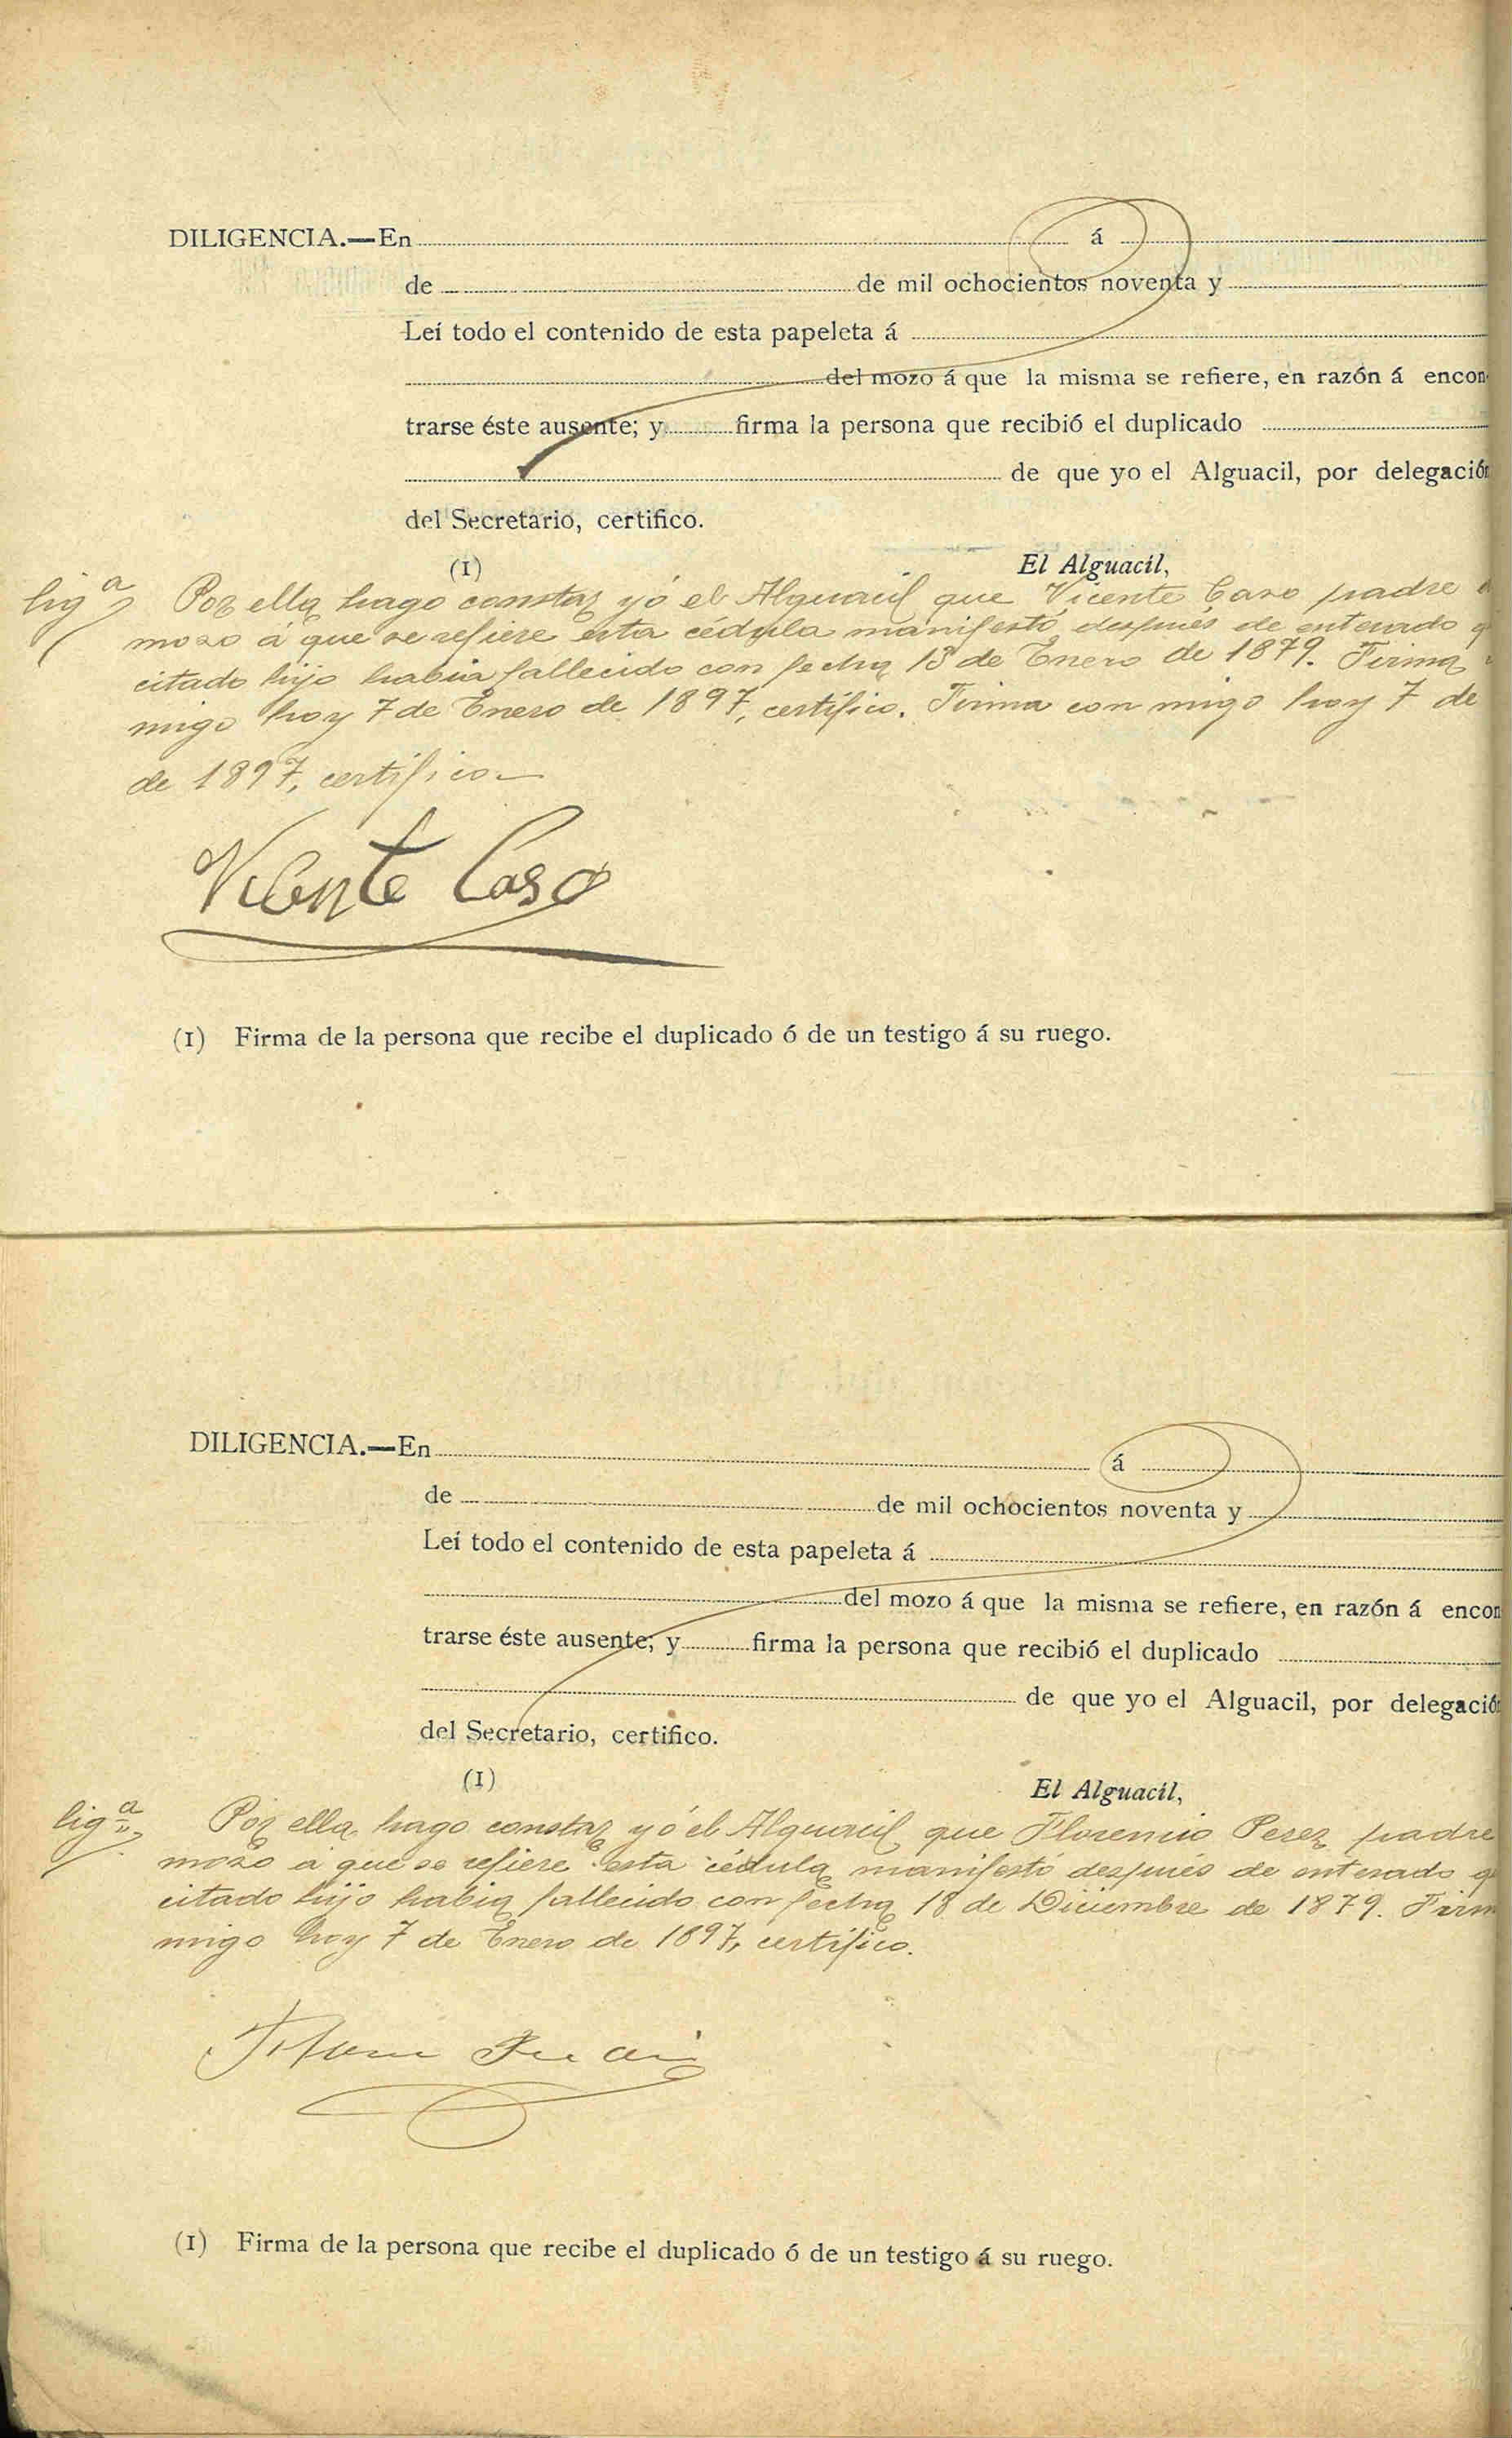 DILIGENCIA.—En á
de de mil ochocientos noventa y
Leí todo el contenido de esta papeleta á
del mozo á que la misma se refiere, en razón á encon-
trarse éste ausente; y firma la persona que recibió el duplicado
de que yo el Alguacil, por delegación
del Secretario, certifico.
(1) El Alguacil,
ligª Por ella hago constar yó el Alguacil que Vicente Caso padre
mozo á que se refiere esta cédula manifestó después de enterado q
citado hijo habia fallecido con fecha 13 de Enero de 1879. Firma
migo hoy 7 de Enero de 1897, certífico. Firma con migo hoy 7 de
de 1897, certífico.
Vicente Caso
(1) Firma de la persona que recibe el duplicado ó de un testigo á su ruego.
DILIGENCIA.—En á
de de mil ochocientos noventa y
Leí todo el contenido de esta papeleta á
del mozo á que la misma se refiere, en razón á encon
trarse éste ausente; y firma la persona que recibió el duplicado
de que yo el Alguacil, por delegación
del Secretario, certifico.
(1) El Alguacil,
ligª Por ella hago constar yó el Alguacil que Florencio Perez padre
mozo á que se refiere esta cédula manifestó después de enterado q
citado hijo habia fallecido con fecha 18 de Diciembre de 1879. Firm
migo hoy 7 de Enero de 1897, certífico.
(1) Firma de la persona que recibe el duplicado ó de un testigo á su ruego.